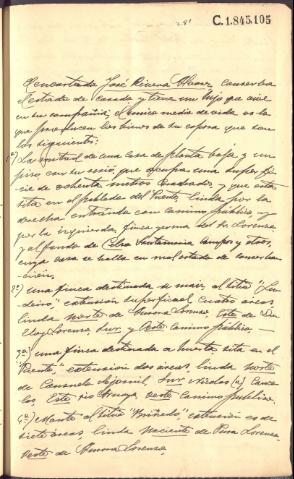 C.1.845.105
El encartado José Rivera conserva
el estado de casado y tiene un hijo que vive
en su compañía, el único medio de vida es lo
que producen los bienes de su esposa que son
los siguientes:
1ª) La mitad de una casa de planta baja y un
piso con su que ocupa una superfi
cie de ochenta metros cuadrados y que está
sita en el poblado del Puente, linda por la
derecha entrando con camino público, y
por la izquierda finca de Lorenzo
y al fondo de Celso Santamaria Campos y otros,
cuya casa se halla en mal estado de conserva-
ción.
2ª) una finca destinada a maiz, al sitio
extensión superficial, cuatro áreas,
linda Norte de Aurora Lorenzo, Este de
Eloy Lorenzo, Sur y Oeste camino público.
3ª) una finca destinada a huerta, sita en el
Puente, extensión dos áreas, linda Norte
de Consuelo Sur
Este rio Oeste camino público.
Monte al sitio extensión es de
siete áreas, linda Naciente de Pura Lorenzo,
Oeste de Aurora Lorenzo